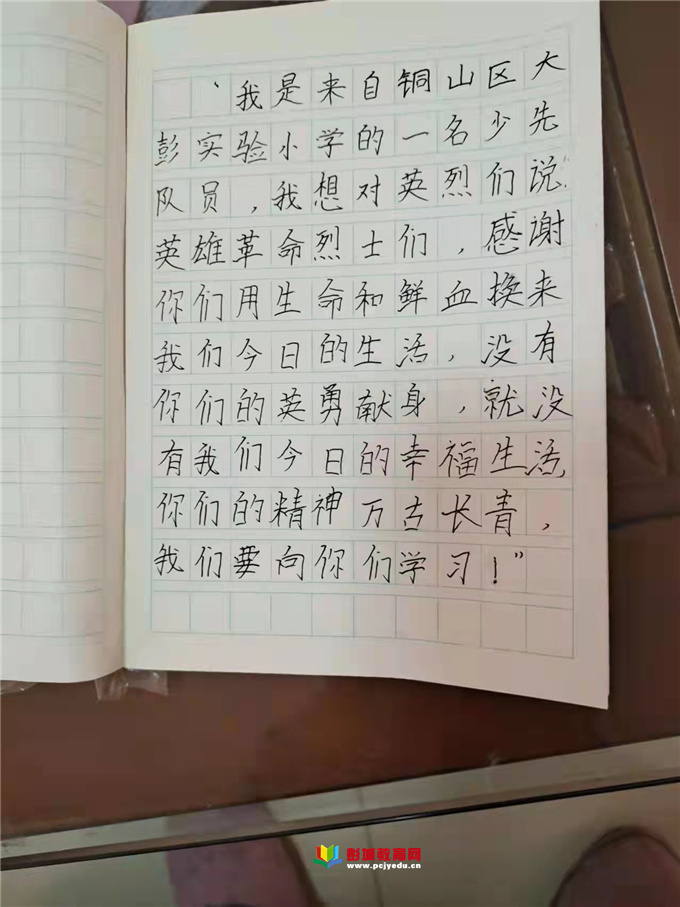 、我是来自铜山区大
彭实验小学的一名少先
队员，我想对英烈们说"
英雄革命烈士们，感谢
你们用生命和鲜血换来
我们今日的生活，没有
你们的英勇献身，就没
有我们今日的幸福生活
你们的精神万古长青，
我们要向你们学习！"
彭城教育网
www.pcjyedu.cn